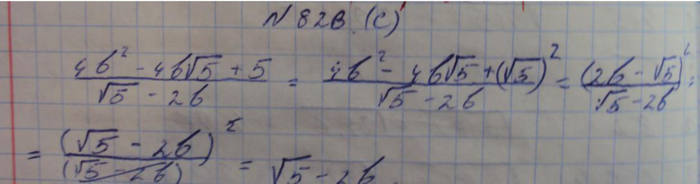 N 82в. (с)
(4b² - 4b√5 + 5)/(√5 - 2b) = (4b² - 4b√5 + (√5)²)/(√5 - 2b) = (2b - √5)²/(√5 - 2b) =
= (√5 - 2b)²/(√5 - 2b) = √5 - 2b.